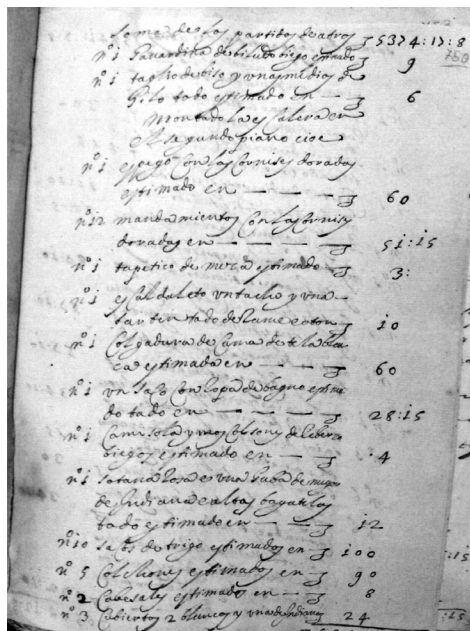 soma de las partidas de atras 5374:17:8
nº 1 de biludo biego estimado 9
nº 1 taglio de biso y unas medias de
hilo todo estimado en — 6
Montado la escalera en
el segundo piano cioe
nº 1 espego con las cornises doradas
estimado en — — — — 60
nº 12 mandamientos con las cornises
doradas en — — — — 51:15
nº 1 tapetico de meza estimado 3:
nº 1 escaldaleto un tacho y una
de rame e oton 10
nº 1 Colgadura de cama de tela
estimada en — — 60
nº 1 un saco con ropa de bagno
todo en — — — 28:15
nº 1 Camisola y unos calsones de
biegos estimado en — 4
nº 1 sotana rosa e una
de Indiana e altas bagatelas
todo estimado en — — 12
nº 10 sacos de trigo estimados en 100
nº 5 Colchones estimados en 90
nº 2 Cavesales estimado en — 8
nº 3 Cubiertos 2 blancos y una de Indiana 24